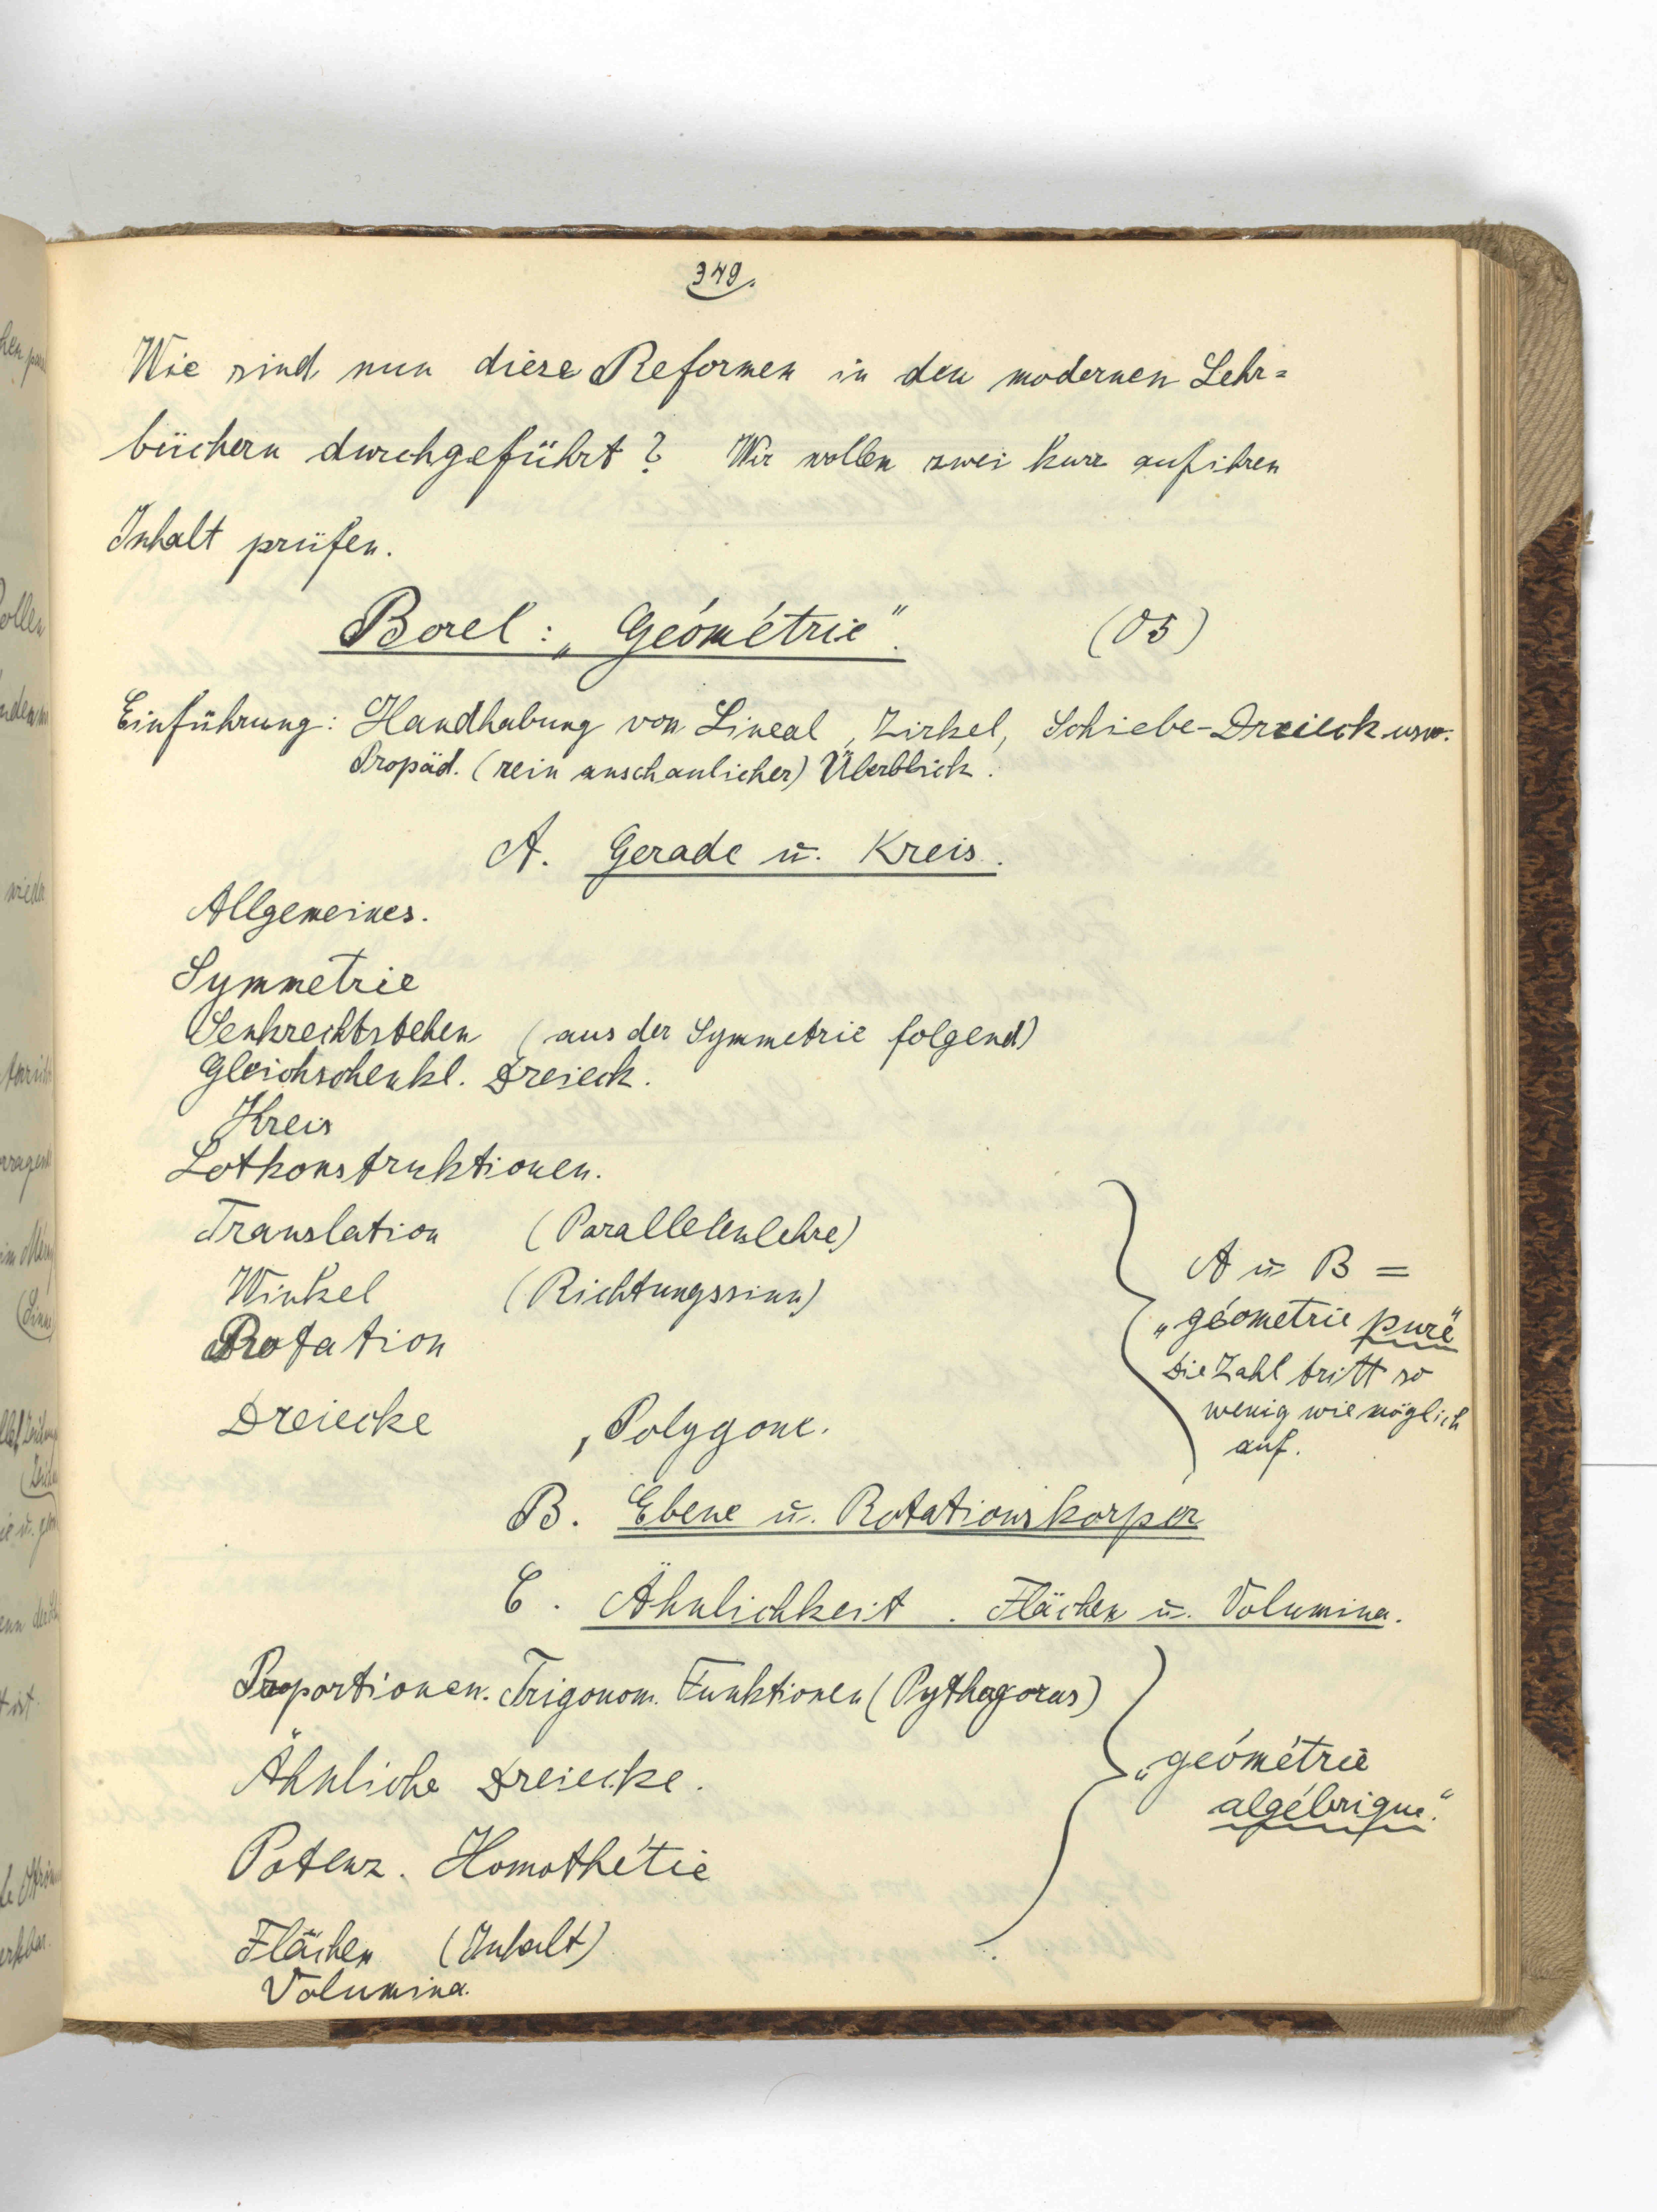 349.
Wie sind nun diese Reformen in den modernen Lehr=
büchern durchgeführt? Wir wollen zwei kurz auf ihren
Inhalt prüfen.
Borel: „Géométrie“. (05)
Einführung: Handhabung von Lineal, Zirkel, Schiebe-Dreieck usw.
Propäd. (rein anschaulicher) Überblick.
A. Gerade u. Kreis.
Allgemeines.
Symmetrie
Senkrechtstehen (aus der Symmetrie folgend)
Gleichschenkl. Dreieck.
Kreis
Lotkonstruktionen.
Translation (Parallelenlehre)
Winkel (Richtungssinn)
Rotation
Dreiecke, Polygone.
A u. B =
„géometrie pure“
Die Zahl tritt so
wenig wie möglich
auf.
B. Ebene u. Rotationskörper
C. Ähnlichkeit. Flächen u. Volumina.
Proportionen. Trigonom. Funktionen (Pythagoras)
Ähnliche Dreiecke.
Potenz. Homothétie
Flächen (Inhalt)
Volumina.
„géométrie
algébrique.“